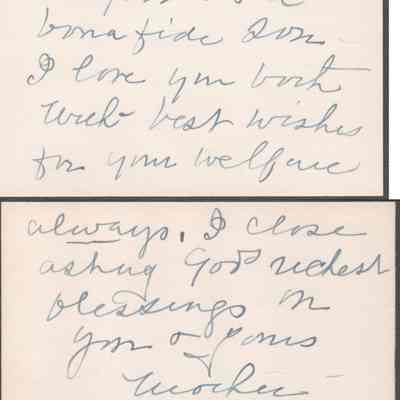 bona fide son -
I love you both
with best wishes
for your welfare
always. I close
asking God's richest
blessings on
you & yours
Mother